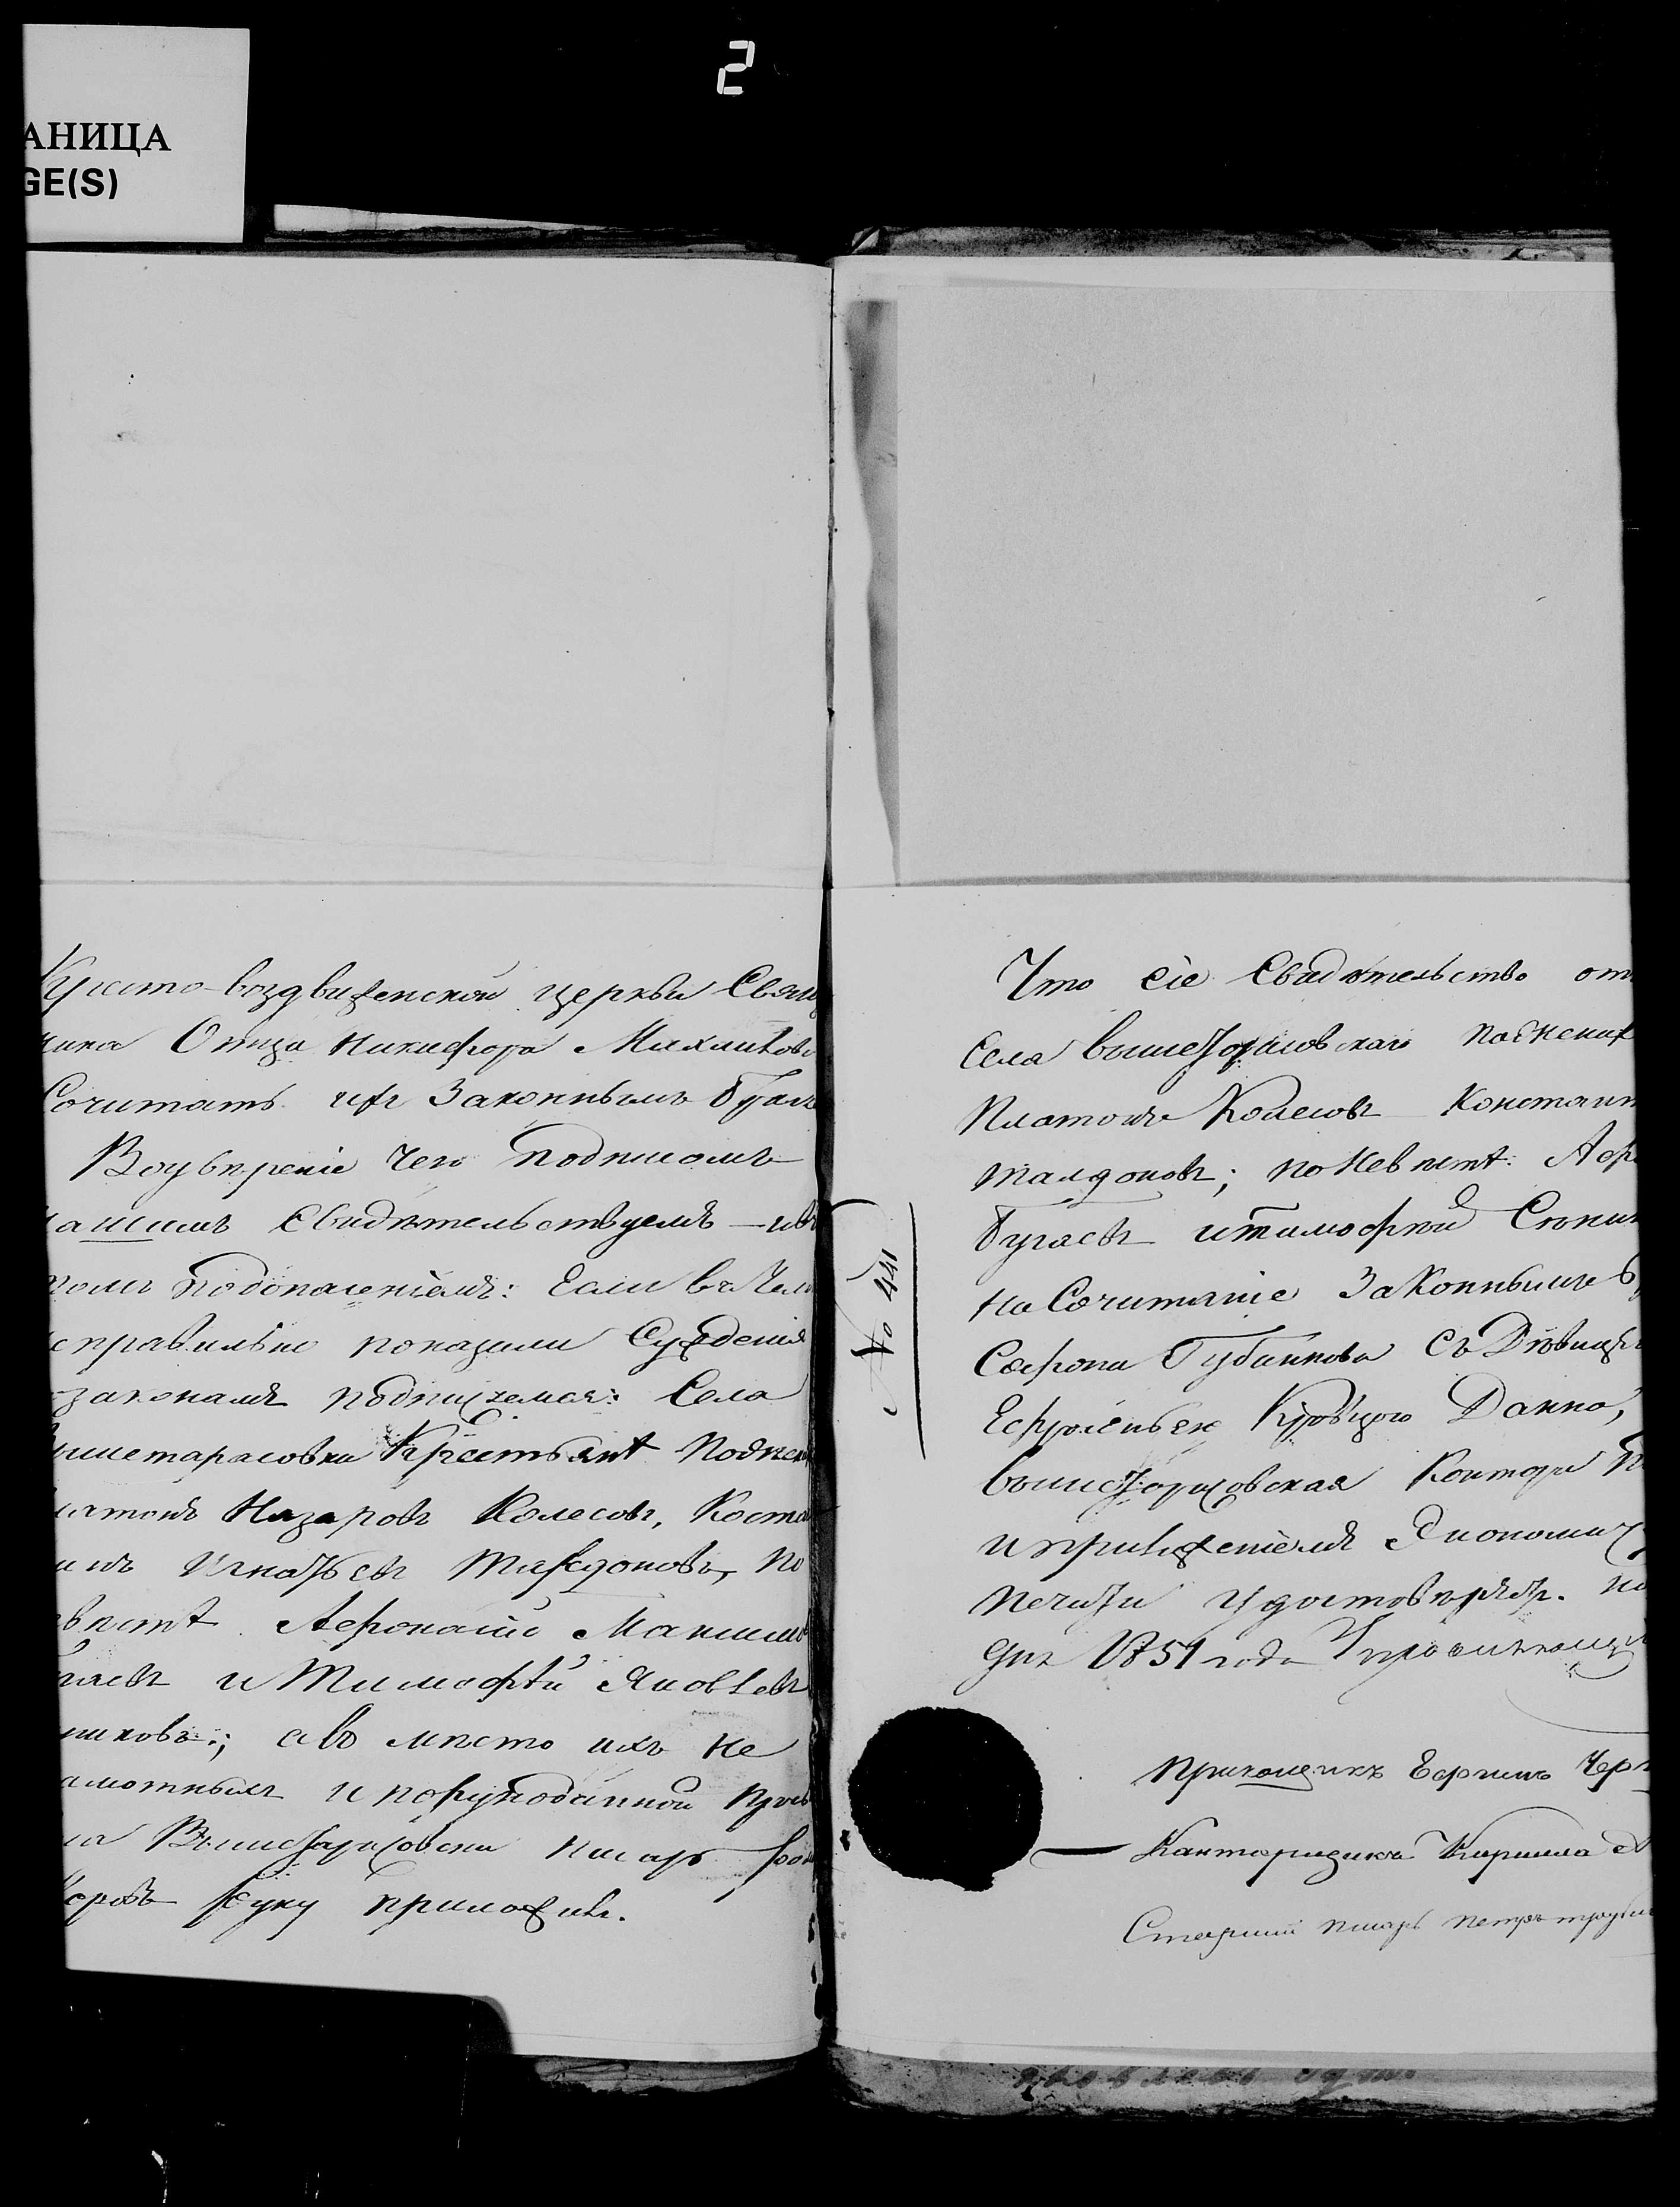 2
АНИЦА
GE(S)
Кресто-воздвиженской церкви Свящ
ника Отца Никифора Михайлова
Сочитать ихъ Законнымъ бракъ
Воувѣреніе Чего подписомъ
нашимъ Свидѣтельствуемъ
томъ подопасеніемъ: Если въ Чемъ
справильно показали Сужденія
законамъ подлежемся: Села
ышетарасовки Крестьянѣ Поджен
латонъ Назаровъ Колесовъ, Коста
инъ Игнатьевъ Талдоновъ, По
евѣстѣ Афонасій Максимов
гаевъ и Тимофѣй Яковлевъ
никовъ; авъ мѣсто ихъ не
амотныхъ и порукоданной прозь
ла Вышетарасовки писарь
руку приложилъ.
Что сіе Свидѣтельство от
села вышетарасовскаго поджених
Платонъ Колесовъ Констант
Талдоновъ; поневѣстѣ: Афо
Бугаевъ и тимофѣй
на Сочитаніе Законнымъ б
Сафрона Губанкова съ Дѣвицею
Дана,
вышетарасовская Контора
и приложеніемъ Экономич
печати удостовѣряетъ.
дня 1851 года
№ 441
Прикащикъ Ефимъ Чер
Канторщикъ Кирила
Старшій писарь Петръ